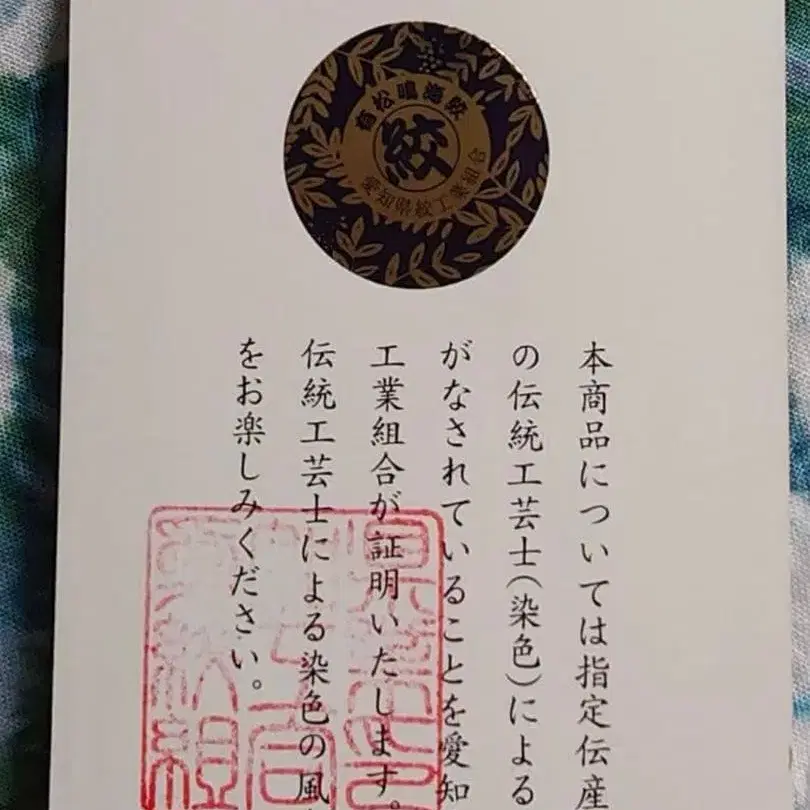 有松鳴海絞
絞
愛知県絞工業組合
本商品については指定伝産
の伝統工芸士(染色)による
がなされていることを愛知
工業組合が証明いたします。
伝統工芸士による染色の風
をお楽しみください。